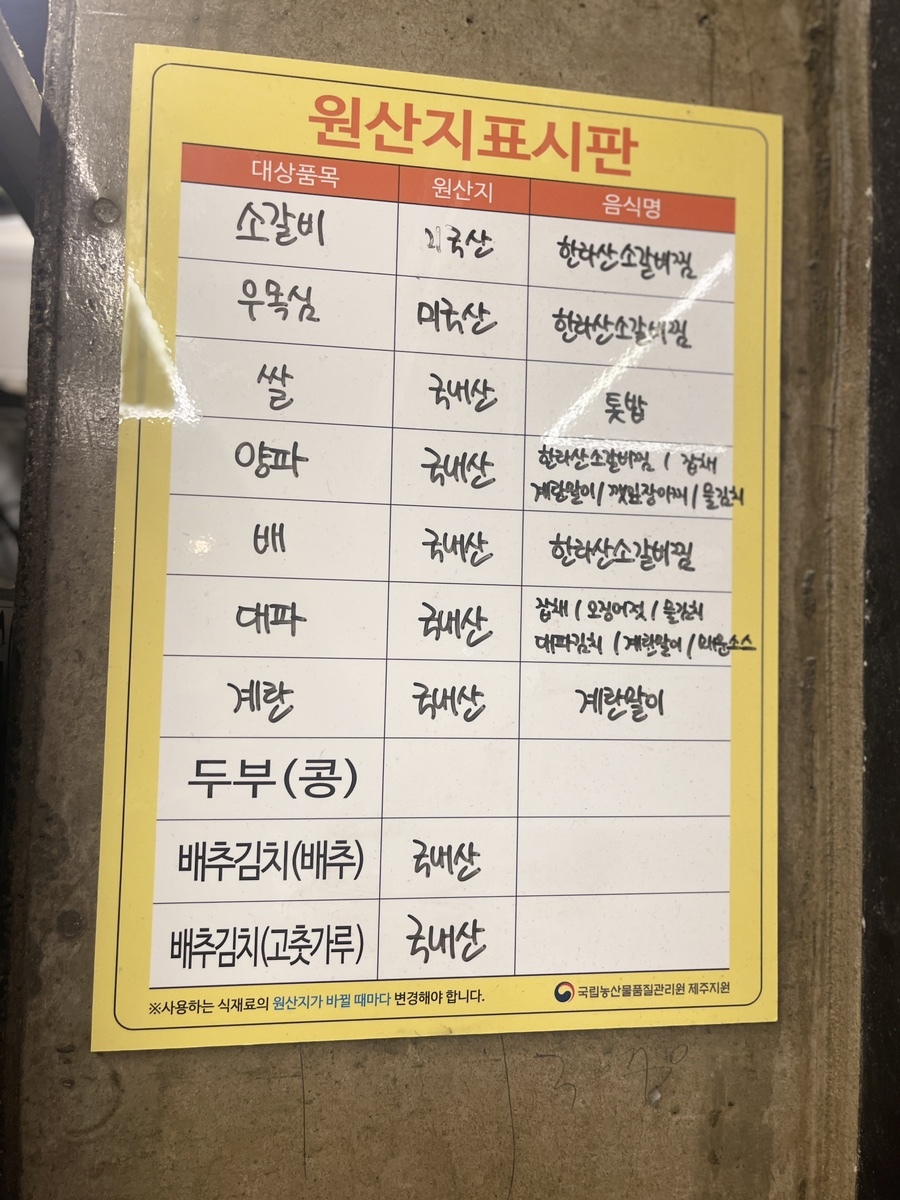 원산지표시판
대상품목 원산지 음식명
소갈비 미국산 한라산소갈비찜
우목심 미국산 한라산소갈비찜
쌀 국내산 톳밥
양파 국내산 한라산소갈비찜 / 잡채
계란말이 / 깻잎장아찌 / 물김치
배 국내산 한라산소갈비찜
대파 국내산 잡채 / 오징어젓 / 물김치
대파김치 / 계란말이 / 매운소스
계란 국내산 계란말이
두부(콩)
배추김치(배추) 국내산
배추김치(고춧가루) 국내산
※사용하는 식재료의 원산지가 바뀔 때마다 변경해야 합니다.
국립농산물품질관리원 제주지원